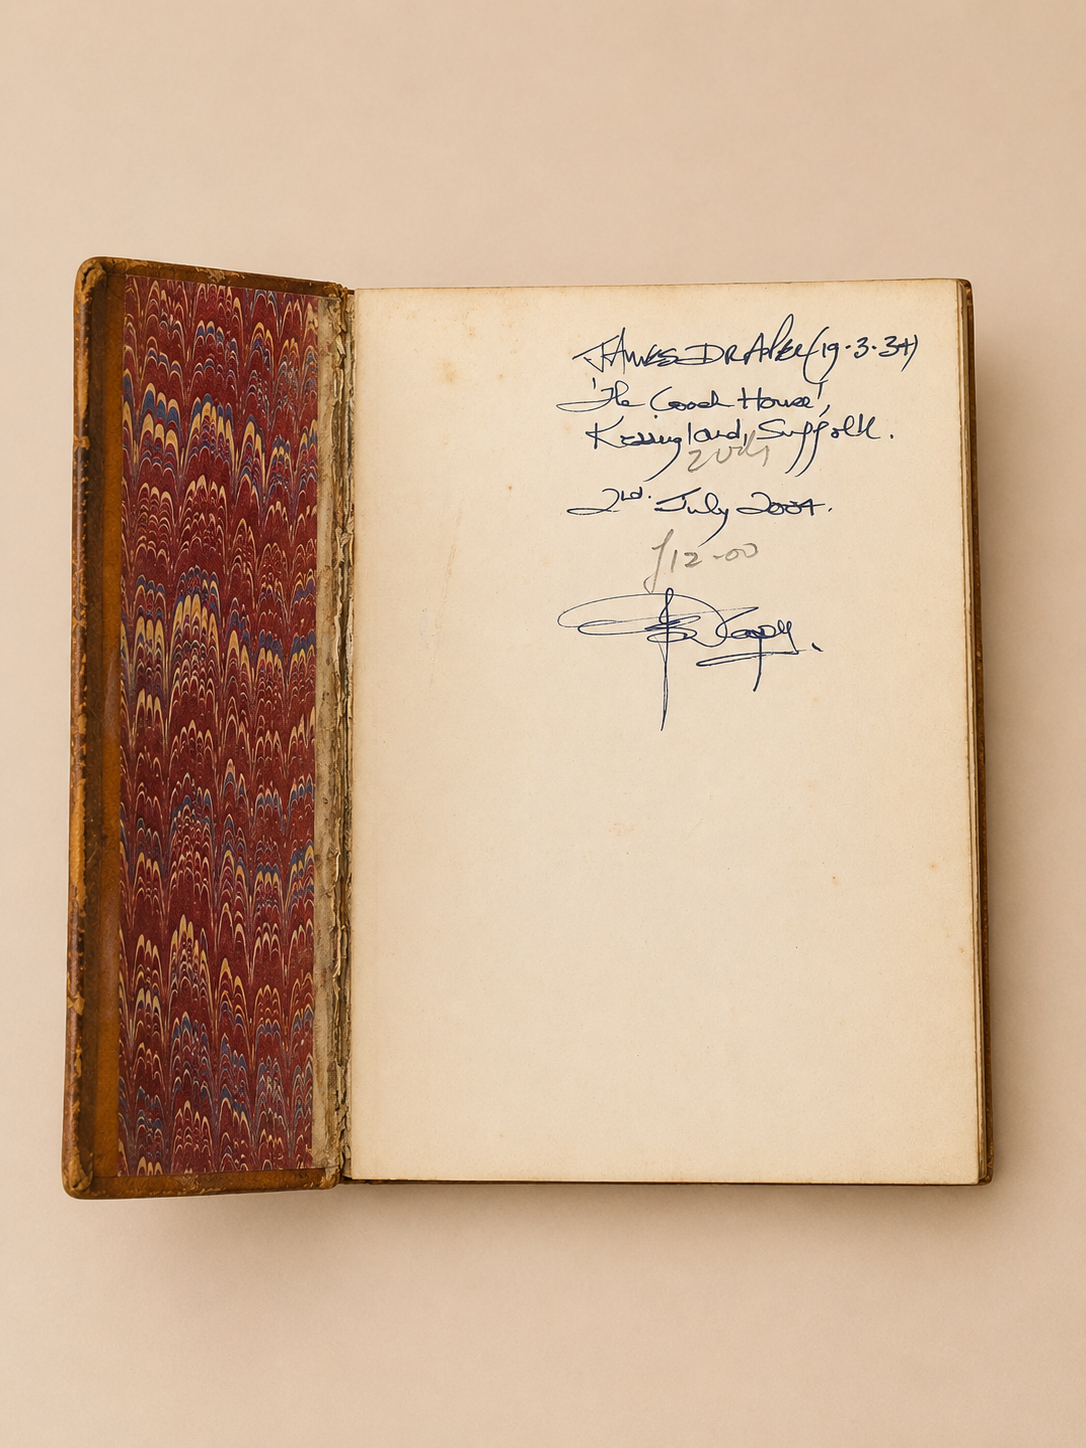 JAMES DRAPER (19.3.34)
'The Coach House',
Kessingland, Suffolk.
2nd. July 2004.
£12-00